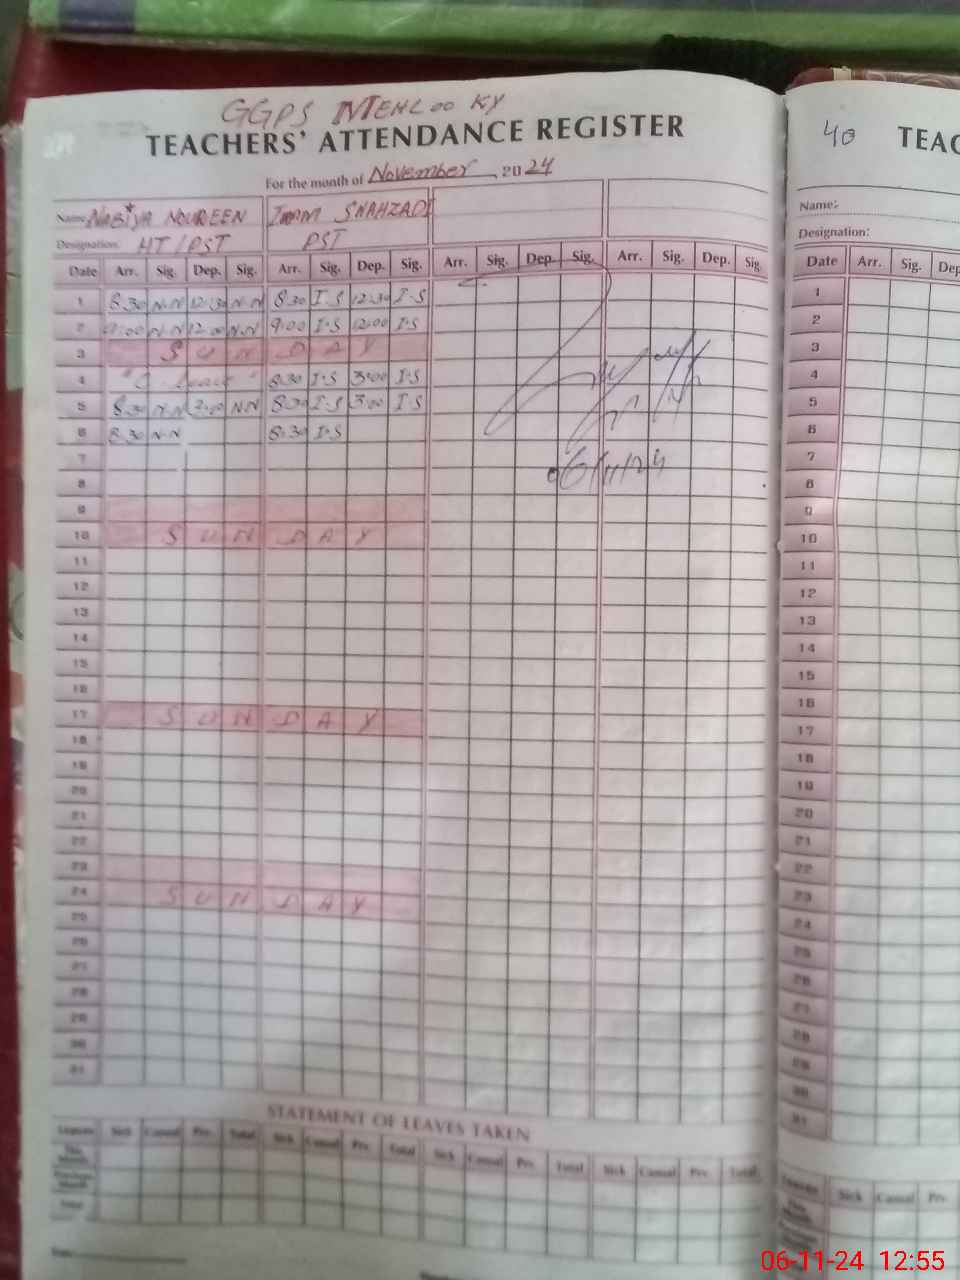 GGPS MEHLOO KY
TEACHERS' ATTENDANCE REGISTER
For the month of November 2024
Name: NABIYA NOUREEN IRAM SHAHZADI
Designation: HT/PST PST
Date Arr. Sig. Dep. Sig. Arr. Sig. Dep. Sig. Arr. Sig. Dep. Sig. Arr. Sig. Dep. Sig.
1 8:30 N-N 12:30 N-N 8:30 I-S 12:30 I-S
2 9:00 N-N 12:00 N-N 9:00 I-S 12:00 I-S
3 S U N D A Y
4 "C. Leave" 8:30 I-S 3:00 I-S
5 8:30 N-N 3:00 NN 8:30 I-S 3:00 I-S
6 8:30 N-N 8:30 I-S
06/11/24
7
8
9
10 S U N D A Y
11
12
13
14
15
16
17 S U N D A Y
18
19
20
21
22
23
24 S U N D A Y
25
26
27
28
29
30
31
STATEMENT OF LEAVES TAKEN
Leaves Sick Casual Prv. Total Sick Casual Prv. Total Sick Casual Prv. Total Sick Casual Prv. Total
This Month
Previous Month
Total
40 TEAC
Name:
Designation:
Date Arr. Sig. Dep
1
2
3
4
5
6
7
8
9
10
11
12
13
14
15
16
17
18
19
20
21
22
23
24
25
26
27
28
29
30
31
Leaves Sick Casual Prv.
This Month
06-11-24 12:55